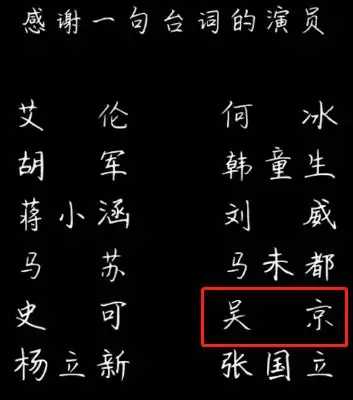 感谢一句台词的演员
艾伦 何冰
胡军 韩童生
蒋小涵 刘威
马苏 马未都
史可 吴京
杨立新 张国立